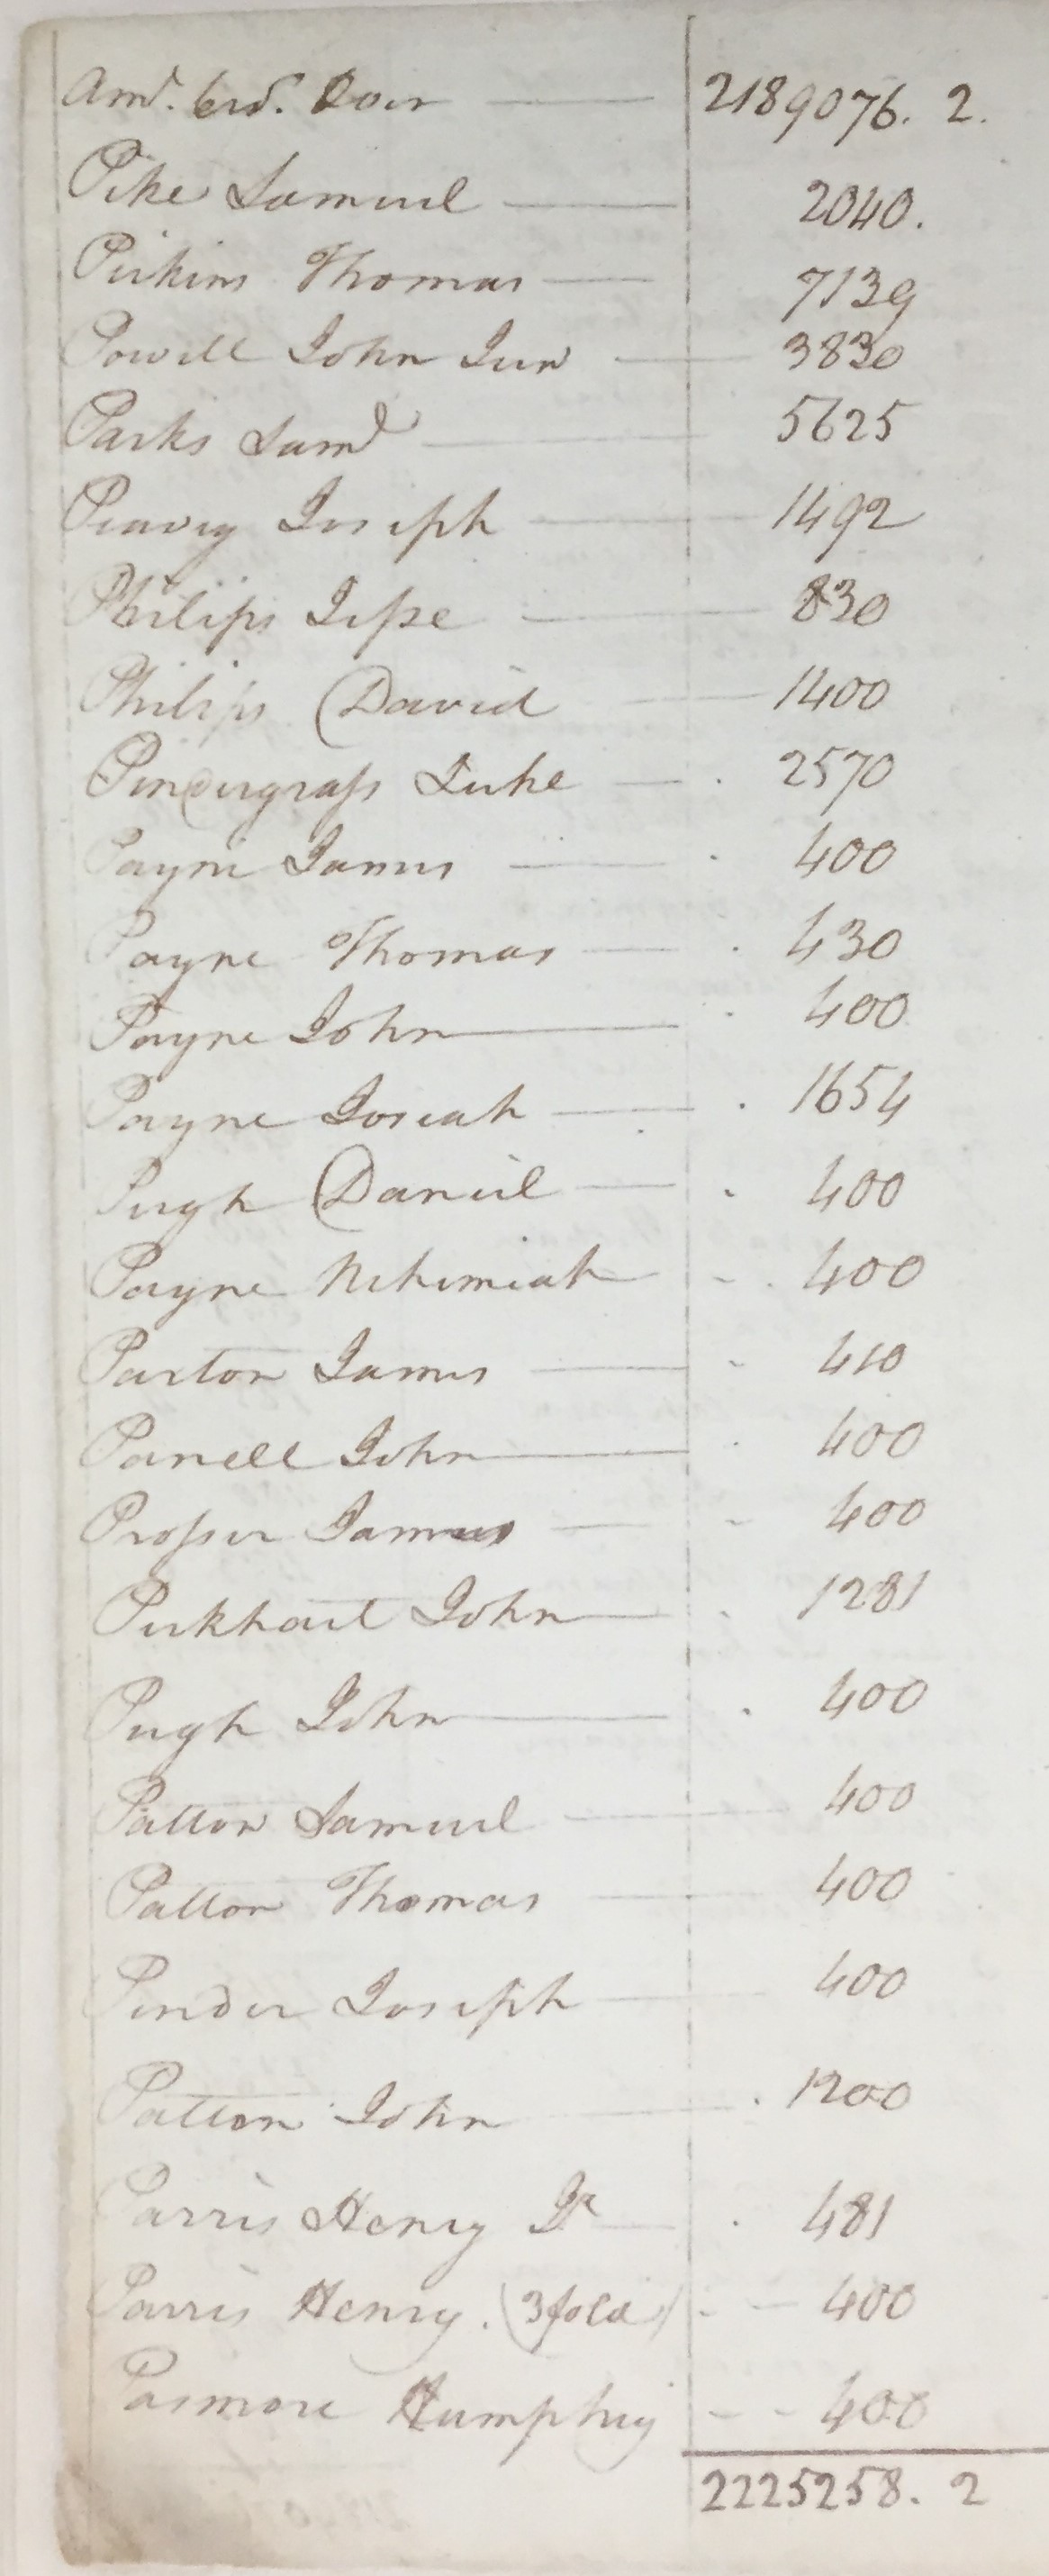 Amt. brd. Over 2189076. 2.
Pike Samuel 2040.
Perkins Thomas 7139
Powell John Jun 3830
Parks Saml 5625
Peavey Joseph 1492
Philips Jesse 830
Philips David 1400
Pendergrass Luke 2570
Payne James 400
Payne Thomas 430
Payne John 400
Payne Josiah 1654
Pugh Daniel 400
Payne Nehemiah 400
Paxton James 410
Panell John 400
Prosser James 400
John 1281
Pugh John 400
Patton Samuel 400
Patton Thomas 400
Pender Joseph 400
Patton John 1200
Parris Henry Jr 481
Parris Henry. (3fold) 400
Pasmore Humphrey 400
2225258. 2